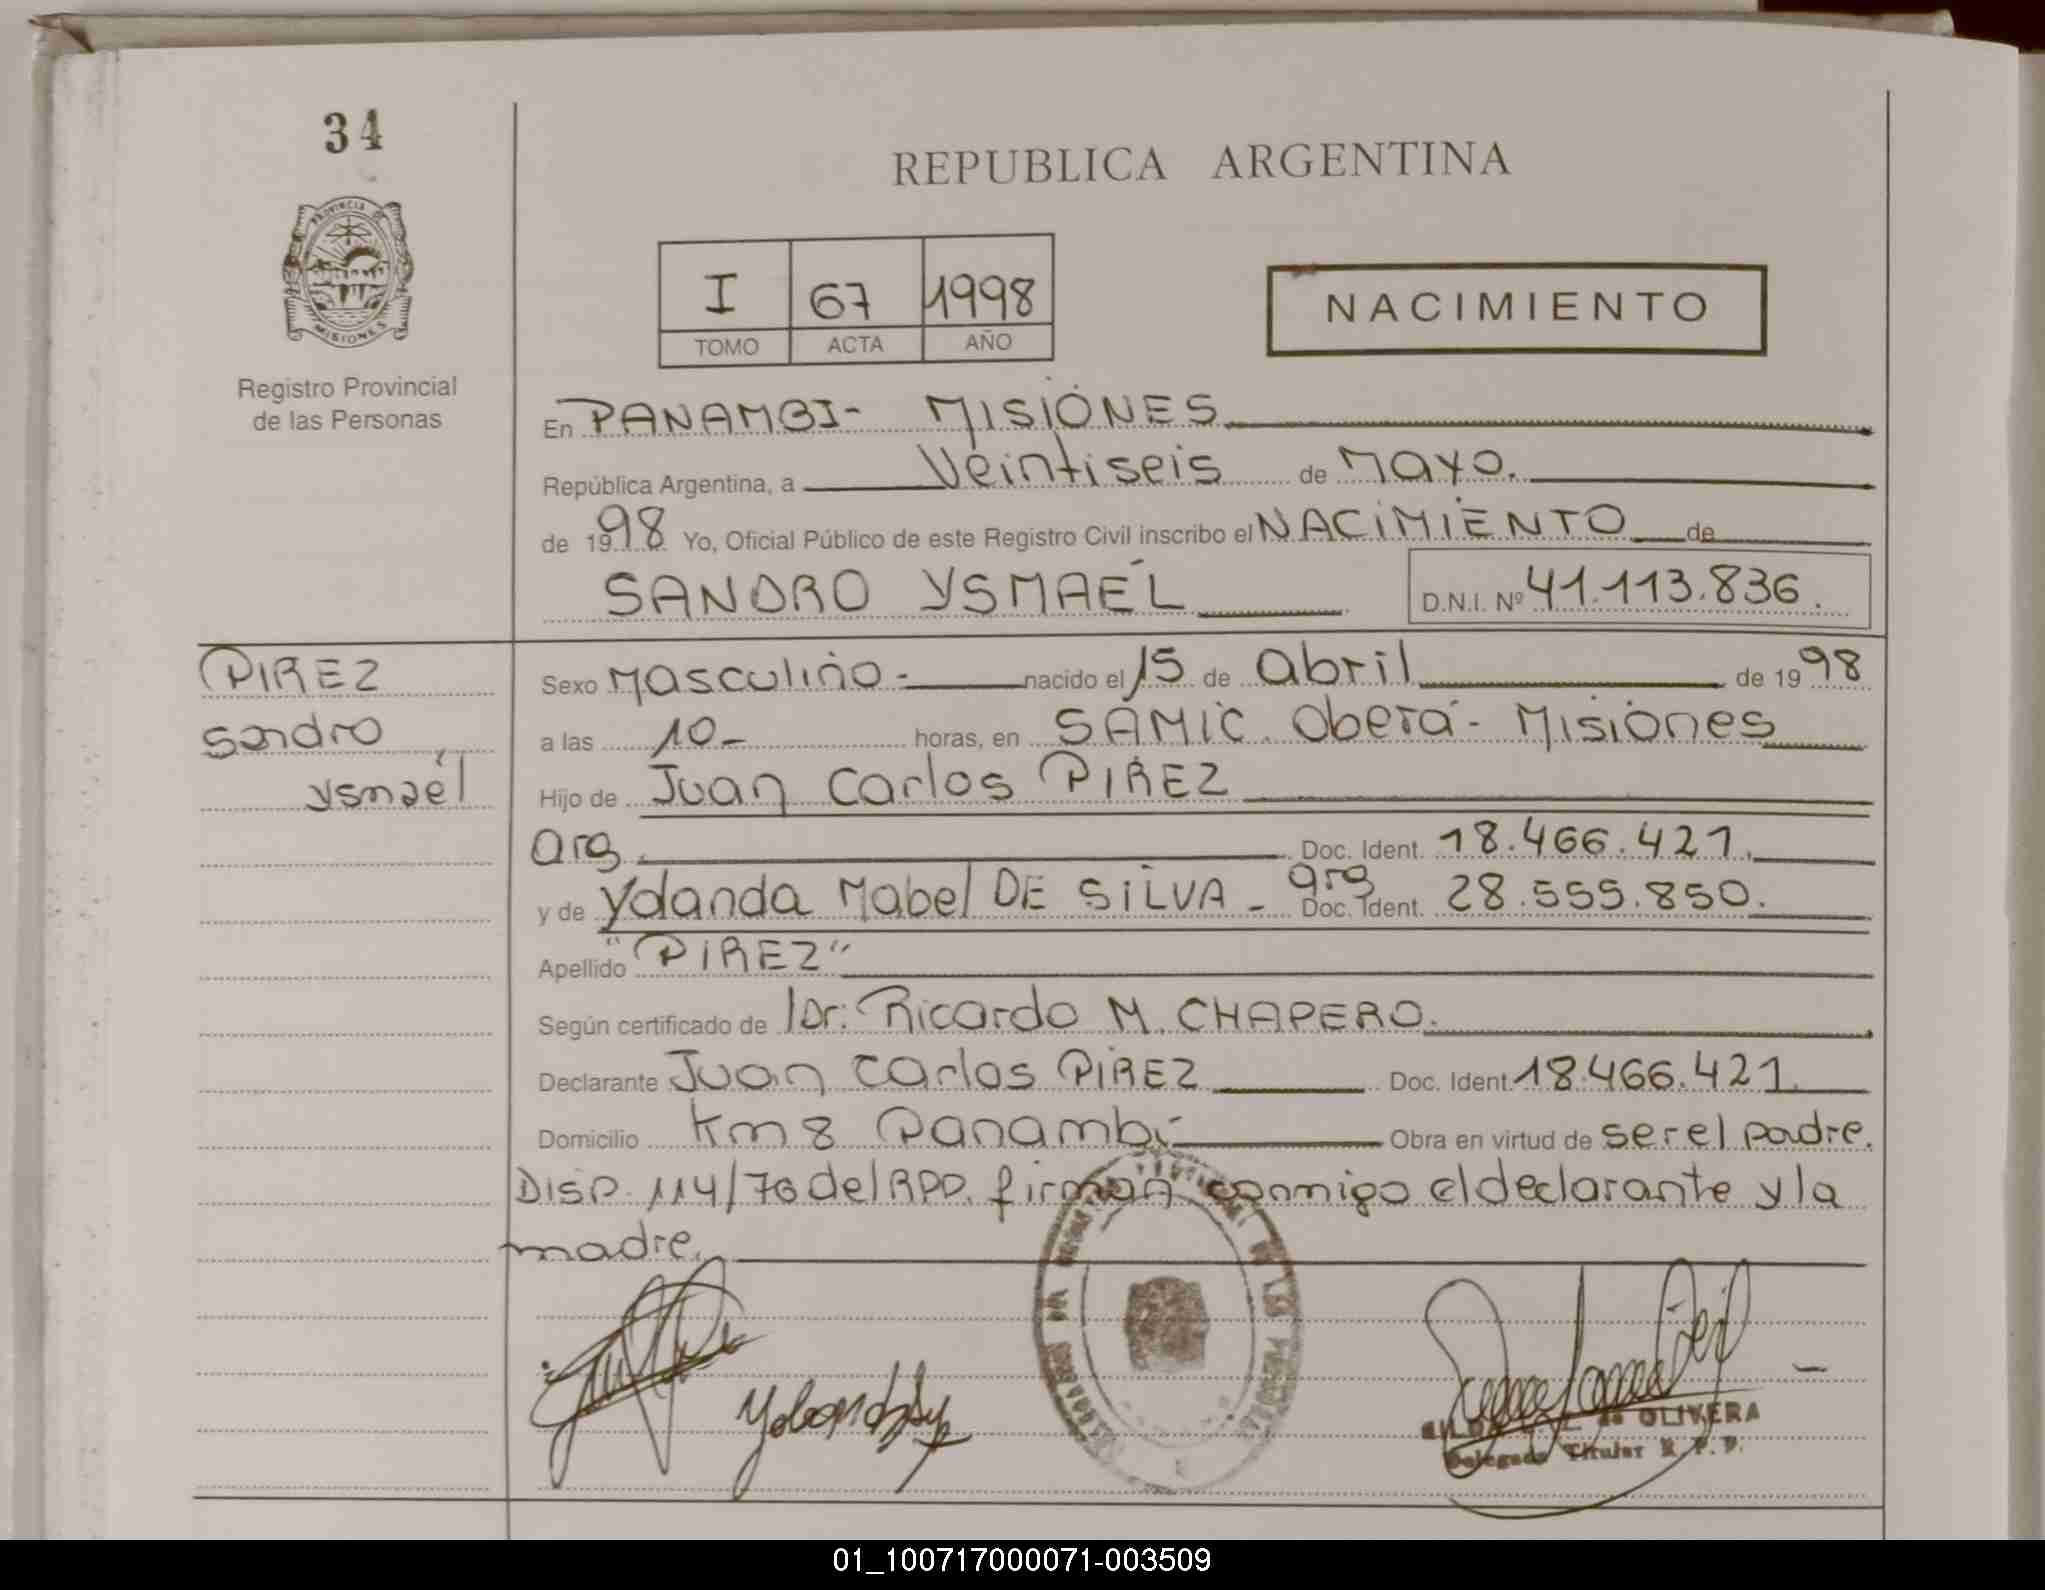 34
REPUBLICA ARGENTINA
PROVINCIA DE
MISIONES
I 67 1998
TOMO ACTA AÑO
NACIMIENTO
Registro Provincial
de las Personas
En PANAMBI- MISIONES
República Argentina, a Veintiseis de Mayo.
de 1998 Yo, Oficial Público de este Registro Civil inscribo el NACIMIENTO de
SANDRO YSMAEL D.N.I. Nº 41.113.836.
PIREZ
Sandro
Ysmaél
Sexo Masculino- nacido el 15 de abril de 1998
a las 10- horas, en SAMIC. Oberá- Misiones
Hijo de Juan Carlos PIREZ
arg. Doc. Ident. 18.466.421.
y de Yolanda Mabel DE SILVA - arg Doc. Ident. 28.555.850.
Apellido "PIREZ"
Según certificado de Dr: Ricardo M. CHAPERO.
Declarante Juan Carlos PIREZ Doc. Ident 18.466.421.
Domicilio Km 8 Panambí Obra en virtud de ser el padre.
DISP. 114/76 del RPP. firman conmigo el declarante y la
madre.
de OLIVERA
Delegada Titular R. P. P.
01_100717000071-003509